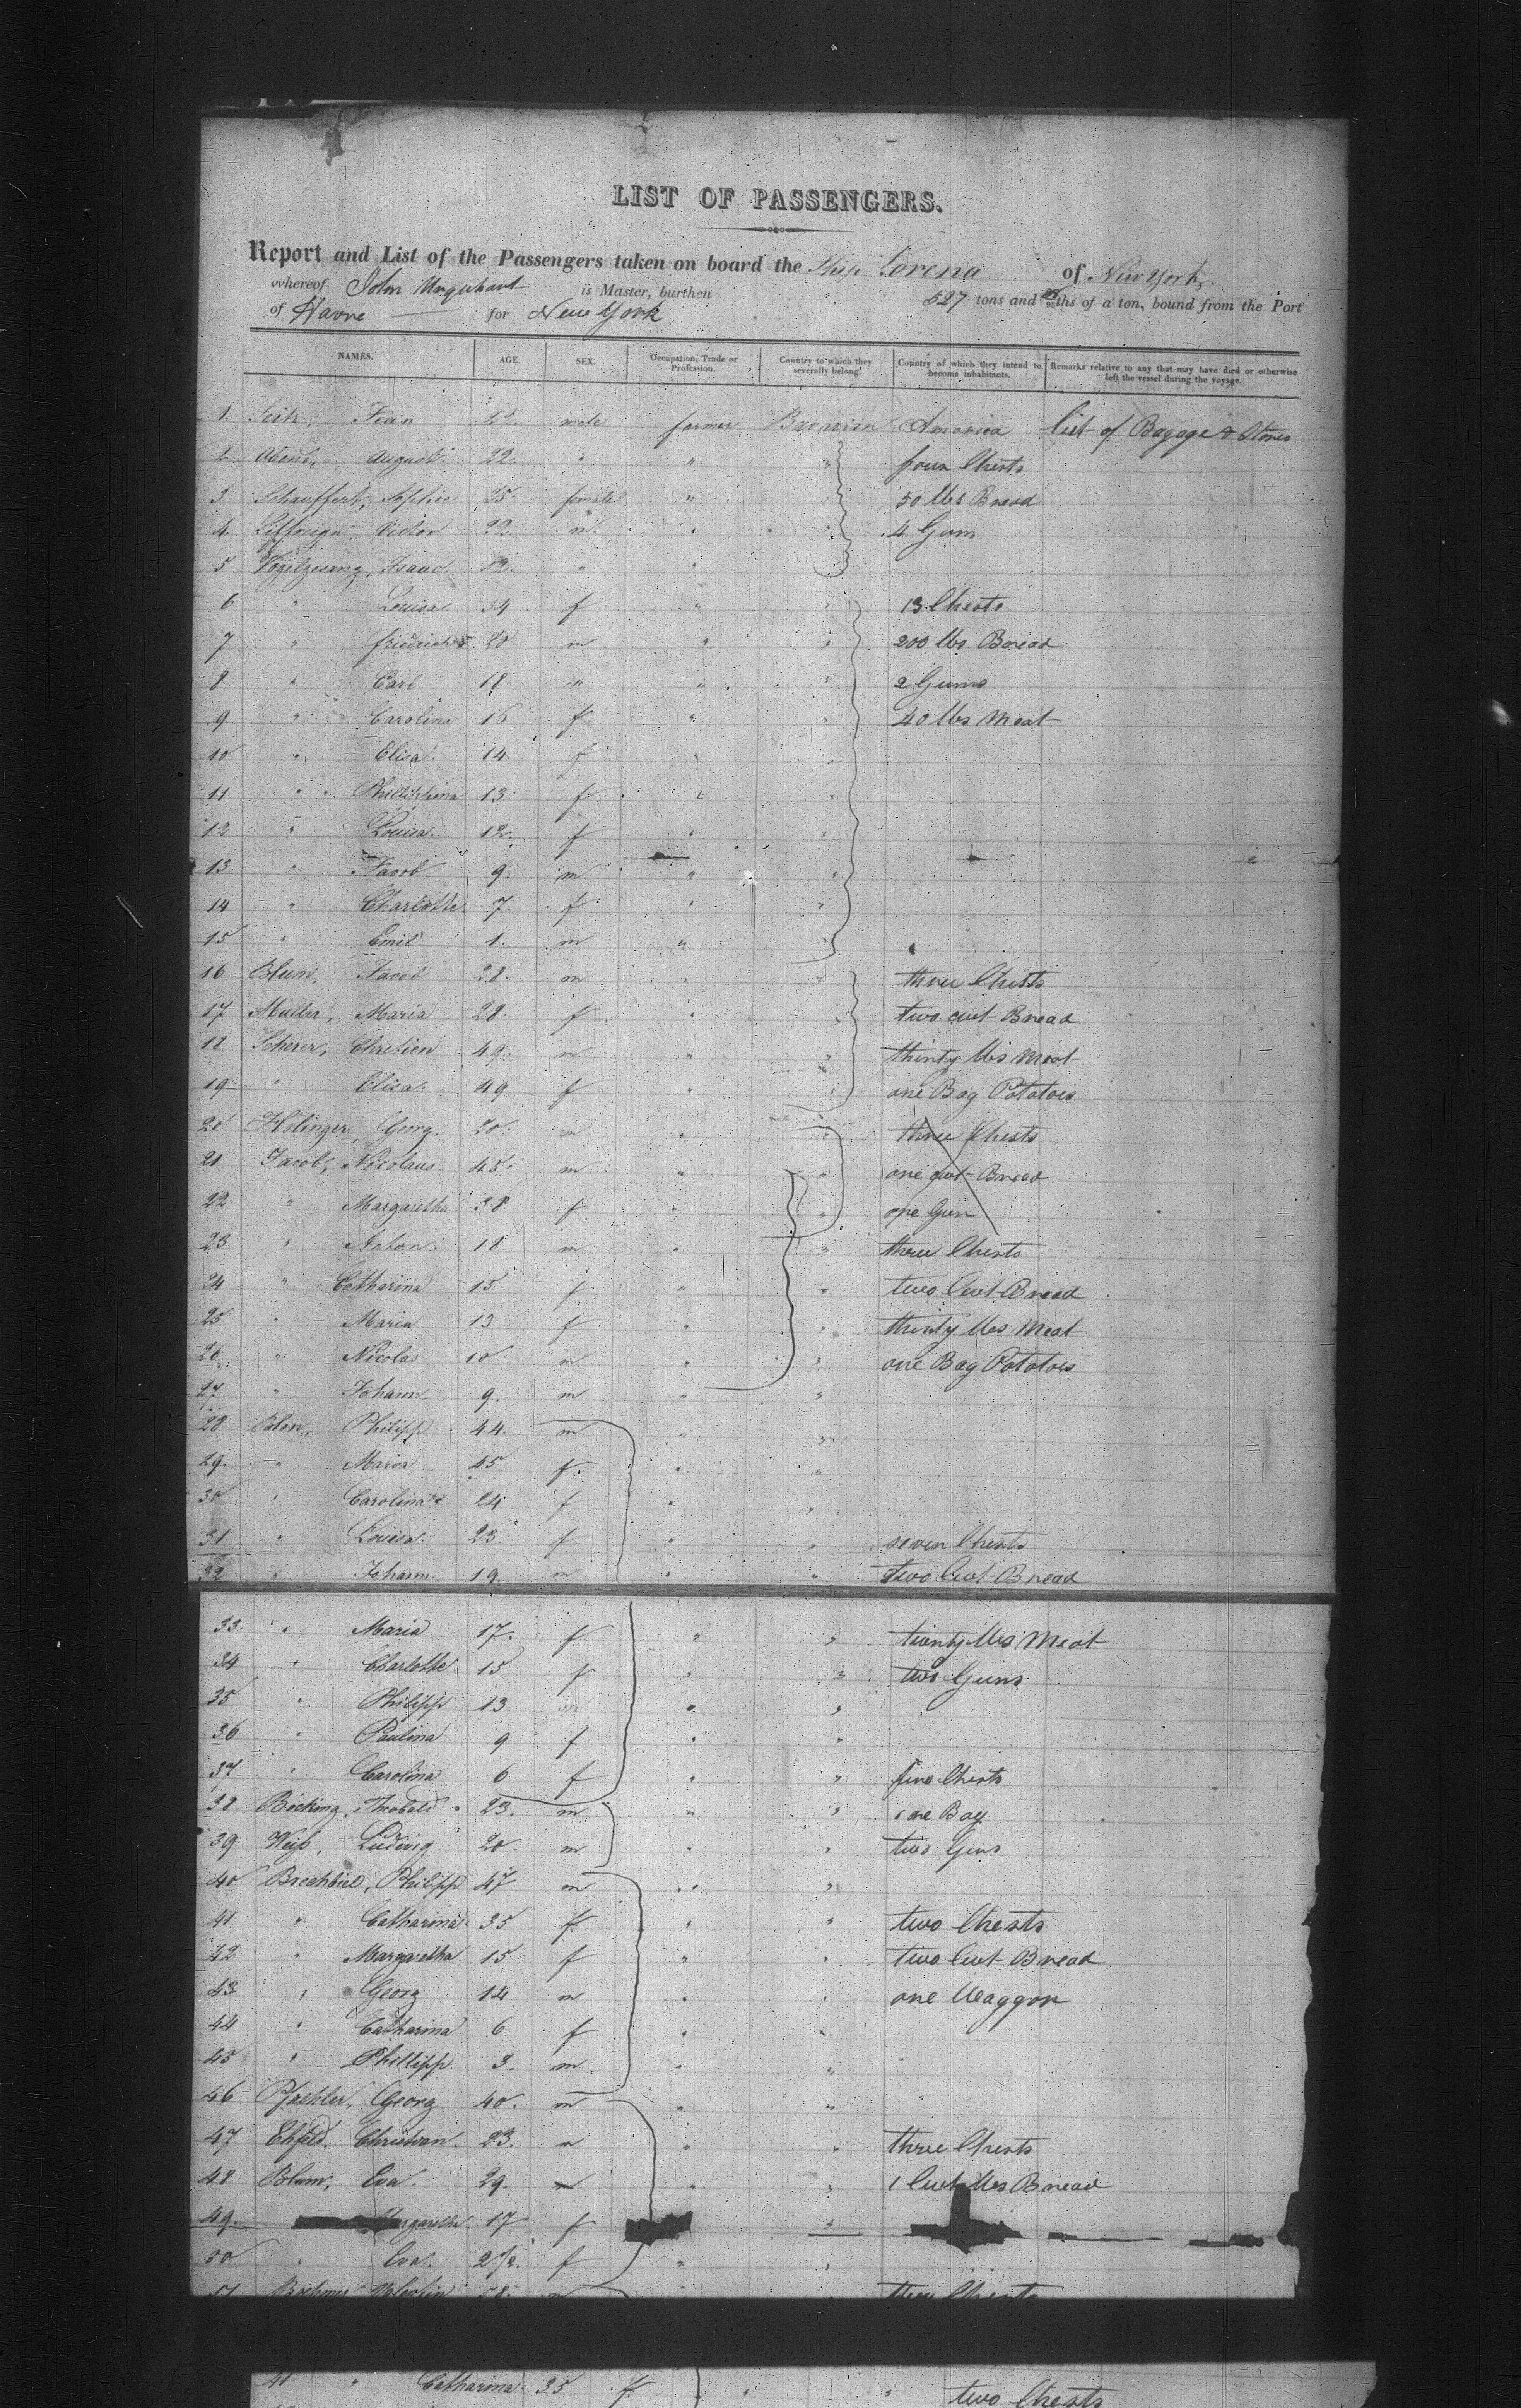 LIST OF PASSENGERS.
Report and List of the Passengers taken on board the Ship Lorena of New York
whereof John Urquhart is Master, burthen 527 tons and ths of a ton, bound from the Port
of Havre for New York
NAMES. AGE. SEX. Occupation, Trade or Profession. Country to which they severally belong. Country of which they intend to become inhabitants. Remarks relative to any that may have died or otherwise left the vessel during the voyage.
1. Jean 22. male farmer Bavarian America List of Bagage & Stores
2. August. 22. " " " four Chests
3 Schauffert, Sophie 25. female " " 50 lbs Bread
4. Victor 22. m. " " 4 Guns
5 Vogelgesang, Isaac. 52. " " "
6 " Louisa 34 f " " 13 Chests
7 " friedrich 20 m " " 200 lbs Bread
8 " Carl 18 " " " 2 Guns
9 " Carolina 16 f " " 40 lbs Meat
10 " Elisa. 14. f " "
11 " Philippina 13. f " "
12 " Louisa. 12. f " "
13 " Jacob 9. m " "
14 " Charlotte 7. f " "
15 " Emil 1. m " "
16 Blum, Jacob 28. m " " three Chests
17 Muller, Maria 28. f " " two cwt Bread
18 Scherer, Chretien 49. m " " thirty lbs Meat
19 " Elisa. 49 f " " one Bag Potatoes
20 Hölinger, Georg. 20. m " " three Chests
21 Jacob, Nicolaus 45. m " " one cwt Bread
22 " Margaretha 38. f " " one Gun
23 " Anton. 18 m " " three Chests
24 " Catharina 15 f " " two Cwt Bread
25 " Maria 13 f " " thirty lbs Meat
26 " Nicolas 10 m " " one Bag Potatoes
27 " Johann. 9. m " "
28 Blon, Philipp 44. m " "
29. " Maria 45 f. " "
30 " Carolina 24 f " "
31 " Louisa. 23 f " " seven Chests
32 " Johann. 19. m " " two Cwt Bread
33. " Maria 17. f " " twenty lbs Meat
34 " Charlotte. 15 f " " two Guns
35 " Philipp 13 m " "
36 " Paulina 9 f " "
37 " Carolina 6 f " " five Chests
38 Böcking, Theobald 23. m " " one Bag
39 Weiß, Ludwig 20. m " " two Guns
40 Brechbiel, Philipp 47 m " "
41. " Catharina 35 f " " two Chests
42 " Margaretha 15 f " " two Cwt Bread
43 " Georg 14 m " " one Waggon
44 " Catharina 6 f " "
45 " Phillipp 3. m " "
46 Georg 40. m " "
47 Christian. 23. m " " three Chests
48 Blum, Eva. 29. " " 1 Cwt lbs Bread
49. Margaretha. 17 f "
50 " Eva. 2 1/2. f " "
51 Valentin 58. m Chests
41 " Catharina 35 f " " two Chests